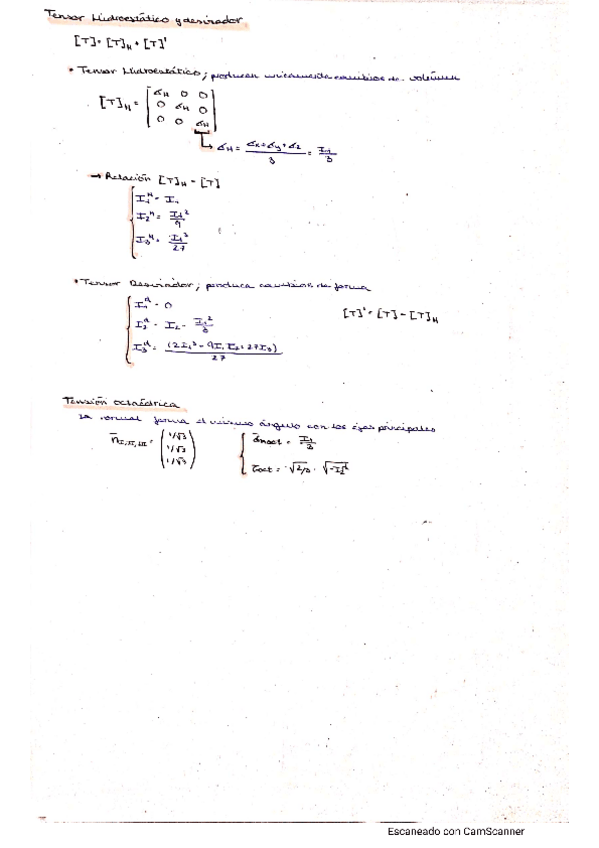 Tensor Hidrostático y desviador
[T] = [T]H + [T]'
• Tensor Hidrostático; producen unicamente cambios de volumen
[T]H = [σH 0 0
0 σH 0
0 0 σH]
↳ σH = (σx + σy + σz)/3 = I1/3
→ Relación [T]H - [T]
I1^H = I1
I2^H = I1²/9
I3^H = I1³/27
• Tensor Desviador; produce cambios de forma
I1^d = 0
[T]' = [T] - [T]H
I2^d = I2 - I1²/3
I3^d = (2I1³ - 9I1 I2 + 27I3)/27
Tensión octaédrica
La normal forma el mismo ángulo con los ejes principales
n I,II,III = (1/√3
1/√3
1/√3)
σnoct = I1/3
τoct = √2/3 · √-I2^d
Escaneado con CamScanner